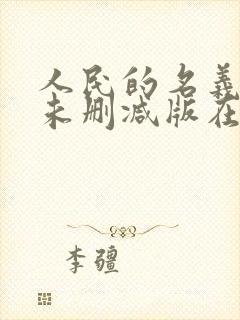 人民的名義
未删减版在
李疆